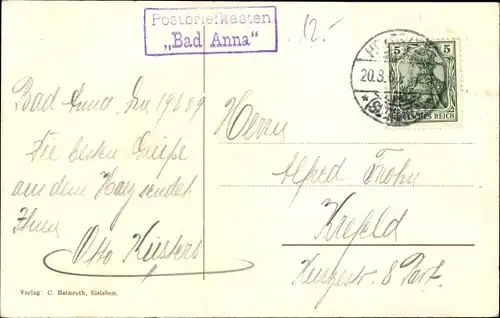 Postbriefkasten
„Bad Anna“
12.-
5 5
20.8.
DEUTSCHES REICH
Bad Anna, den 19.8.09
Die besten Grüße
aus dem Harz sendet
Ihnen
Otto Küsters
Herrn
Alfred Frohn
Krefeld
8 Part.
Verlag: C. Heinroth, Eisleben.